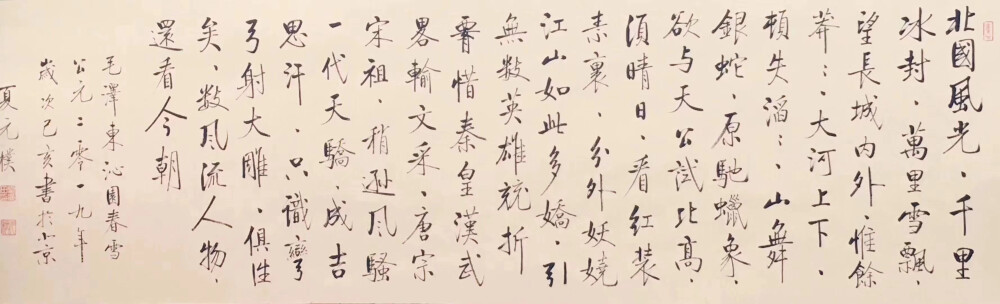 北國風光、千里
冰封、萬里雪飄、
望長城内外、惟餘
莽〻、大河上下、
頓失滔〻、山舞
銀蛇、原馳蠟象、
欲与天公試比高、
須晴日、看紅装
素裹、分外妖嬈
江山如此多嬌、引
無數英雄競折
腰惜秦皇漢武
畧輸文采、唐宗
宋祖、稍遜风騷
一代天驕、成吉
思汗、只識彎
弓射大雕、俱往
矣、数风流人物、
還看今朝
毛澤東沁園春雪
公元二零一九年
歲次己亥書於北京
夏元樸